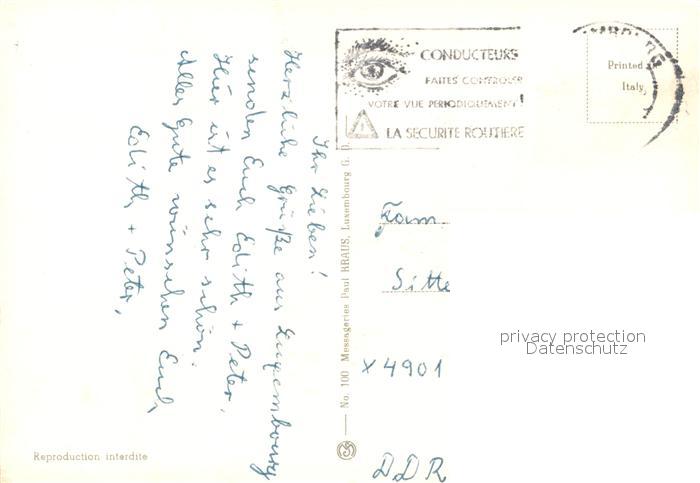 CONDUCTEURS
FAITES CONTROLER
VOTRE VUE PERIODIQUEMENT!
LA SECURITE ROUTIERE
Printed in
Italy
Ihr Lieben!
Herzliche Grüße aus Luxembourg
senden Euch Edith + Peter.
Hier ist es sehr schön.
Alles Gute wünschen Euch
Edith + Peter.
No. 100 Messageries Paul KRAUS, Luxembourg G. D.
Fam.
Sitte
X 4901
DDR
privacy protection
Datenschutz
Reproduction interdite